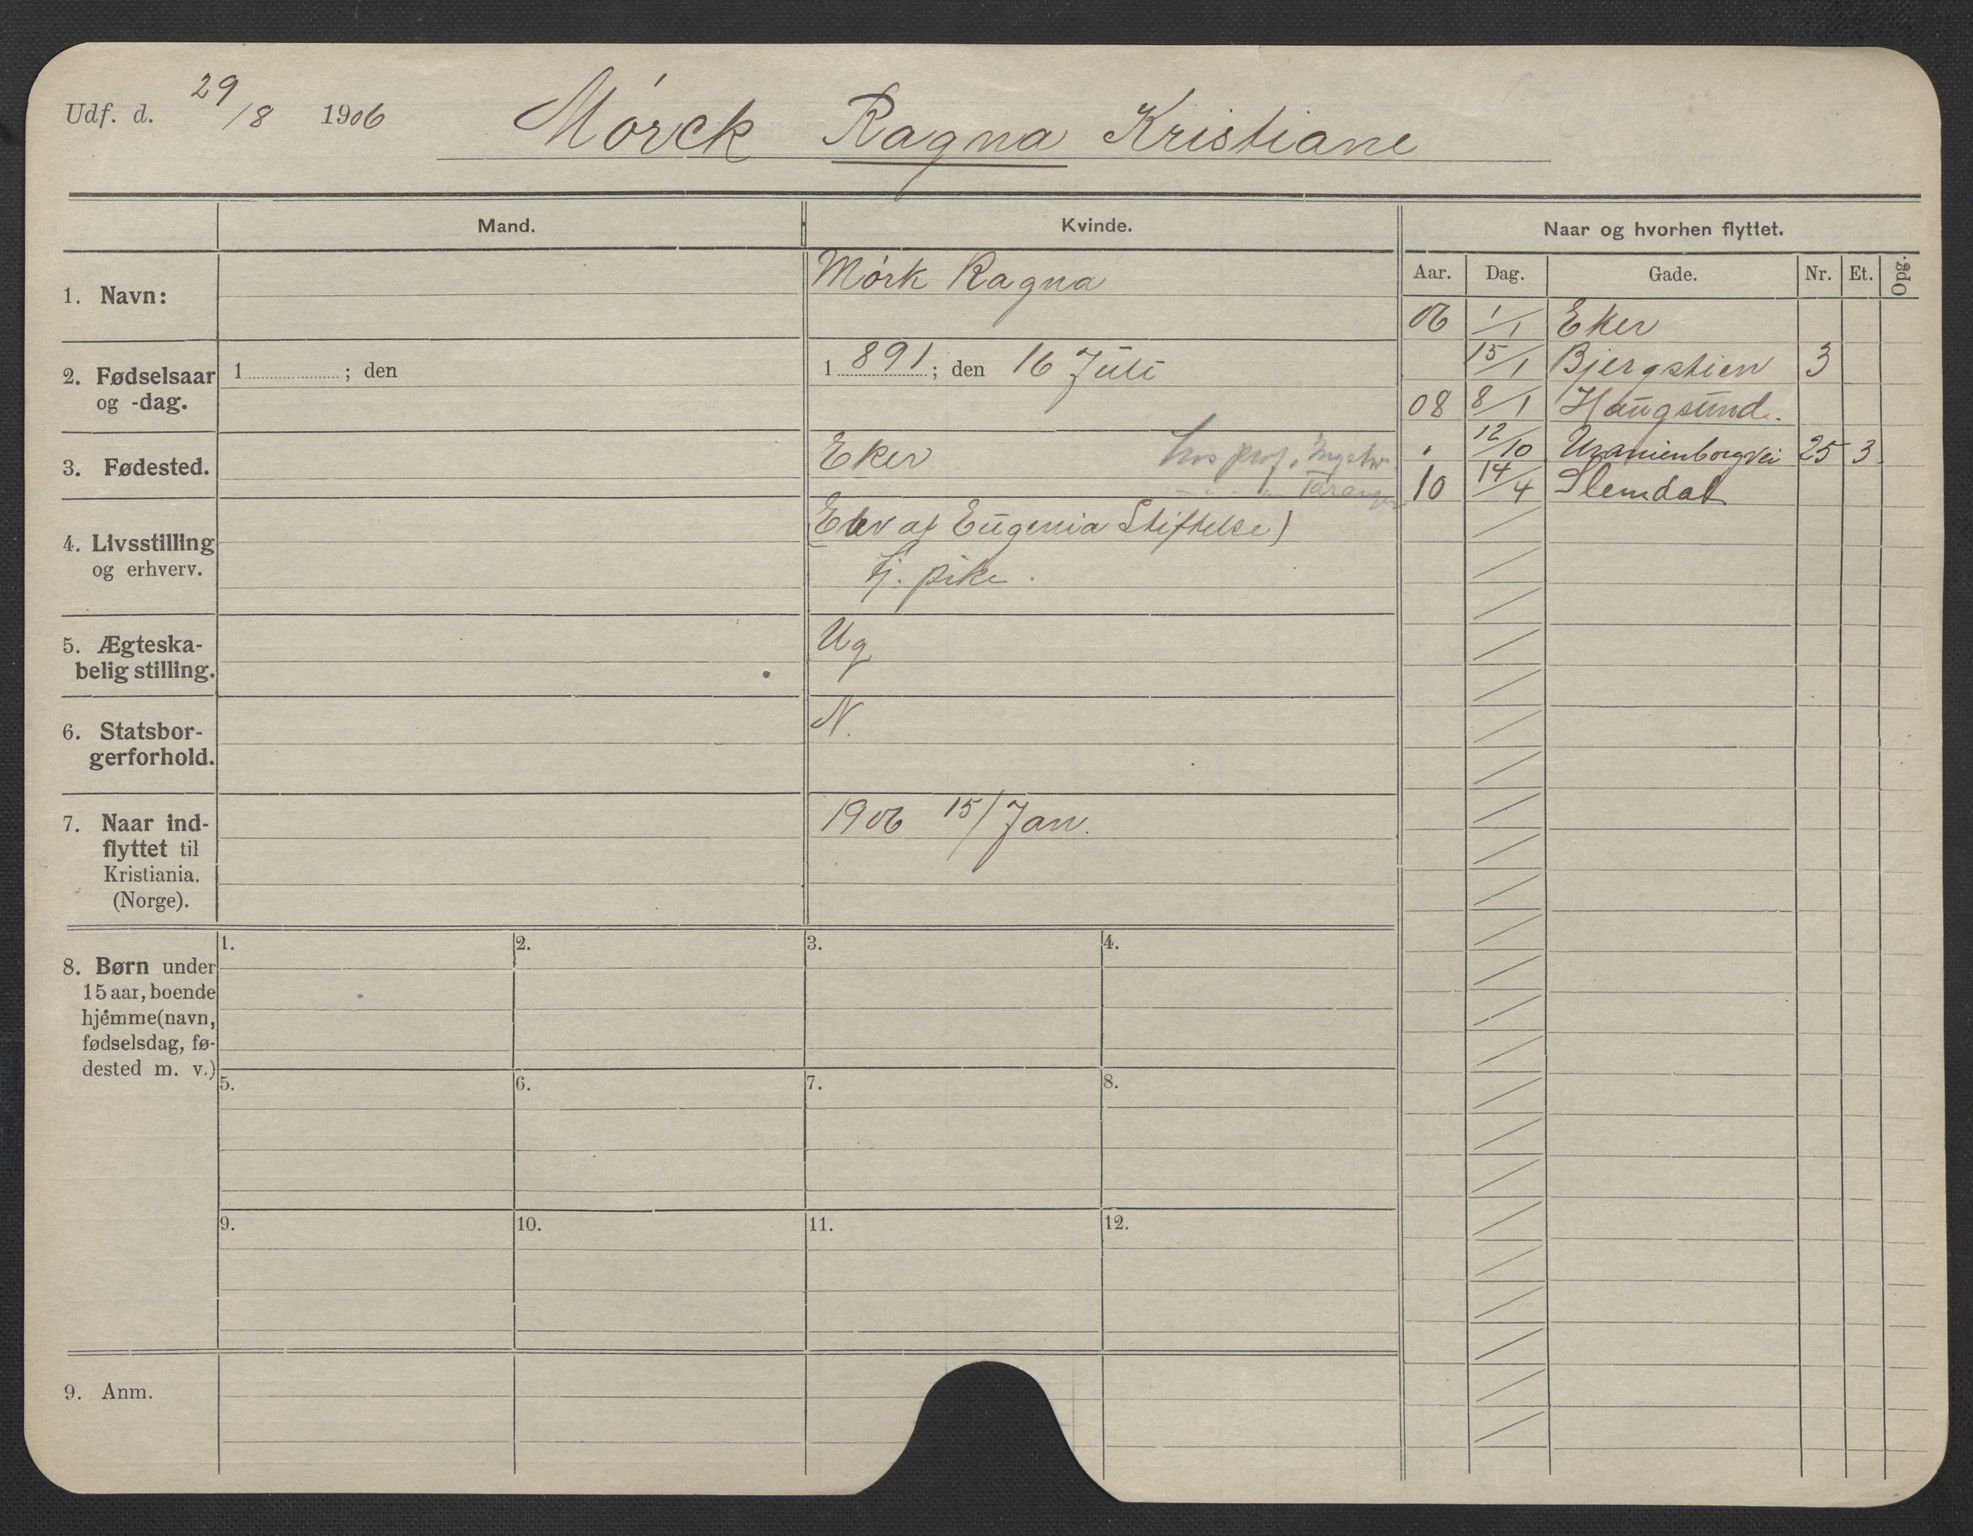 Udf. d. 29/8 1906 Mórck Ragna Kristiane
Mand. Kvinde. Naar og hvorhen flyttet.
Aar. Dag. Gade. Nr. Et. Opg.
1. Navn: Mórk Ragna
06 1/1 Eker
15/1 Bjergstien 3
08 8/1 Haugsund.
" 12/10 Uranienborgvei 25 3
10 14/4 Slemdal
2. Fødselsaar
og -dag.
1 ; den
1891; den 16 Juli
3. Fødested. Eker hos prof.
Taranger
4. Livsstilling
og erhverv.
(Elev af Eugenia Stiftelse)
tj. pike.
5. Ægteska-
belig stilling.
Ug
6. Statsbor-
gerforhold.
N.
7. Naar ind-
flyttet til
Kristiania.
(Norge).
1906 15/Jan.
8. Børn under
15 aar, boende
hjemme (navn,
fødselsdag, fø-
dested m. v.)
1. 2. 3. 4.
5. 6. 7. 8.
9. 10. 11. 12.
9. Anm.